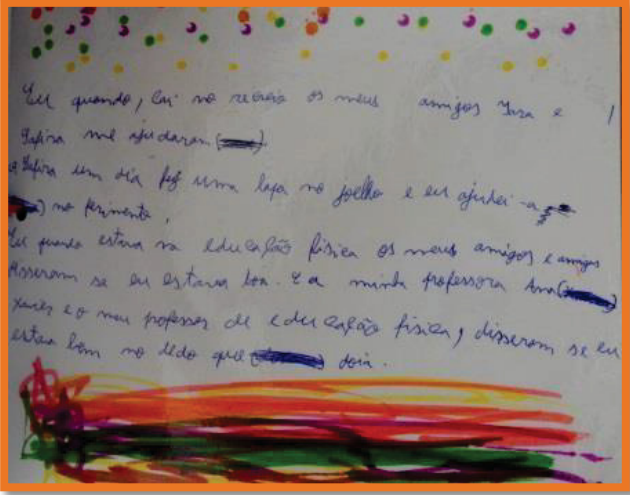 Eu quando, caí no recreio os meus amigos Yara e
Safira me ajudaram
a Safira um dia fez uma lapa no joelho e eu ajudei-a
no ferimento,
Eu quando estava na educação física os meus amigos e amigas
disseram se eu estava boa. E a minha professora Ana
Xavier e o meu professor de educação física, disseram se eu
estava bem no dedo que doía.